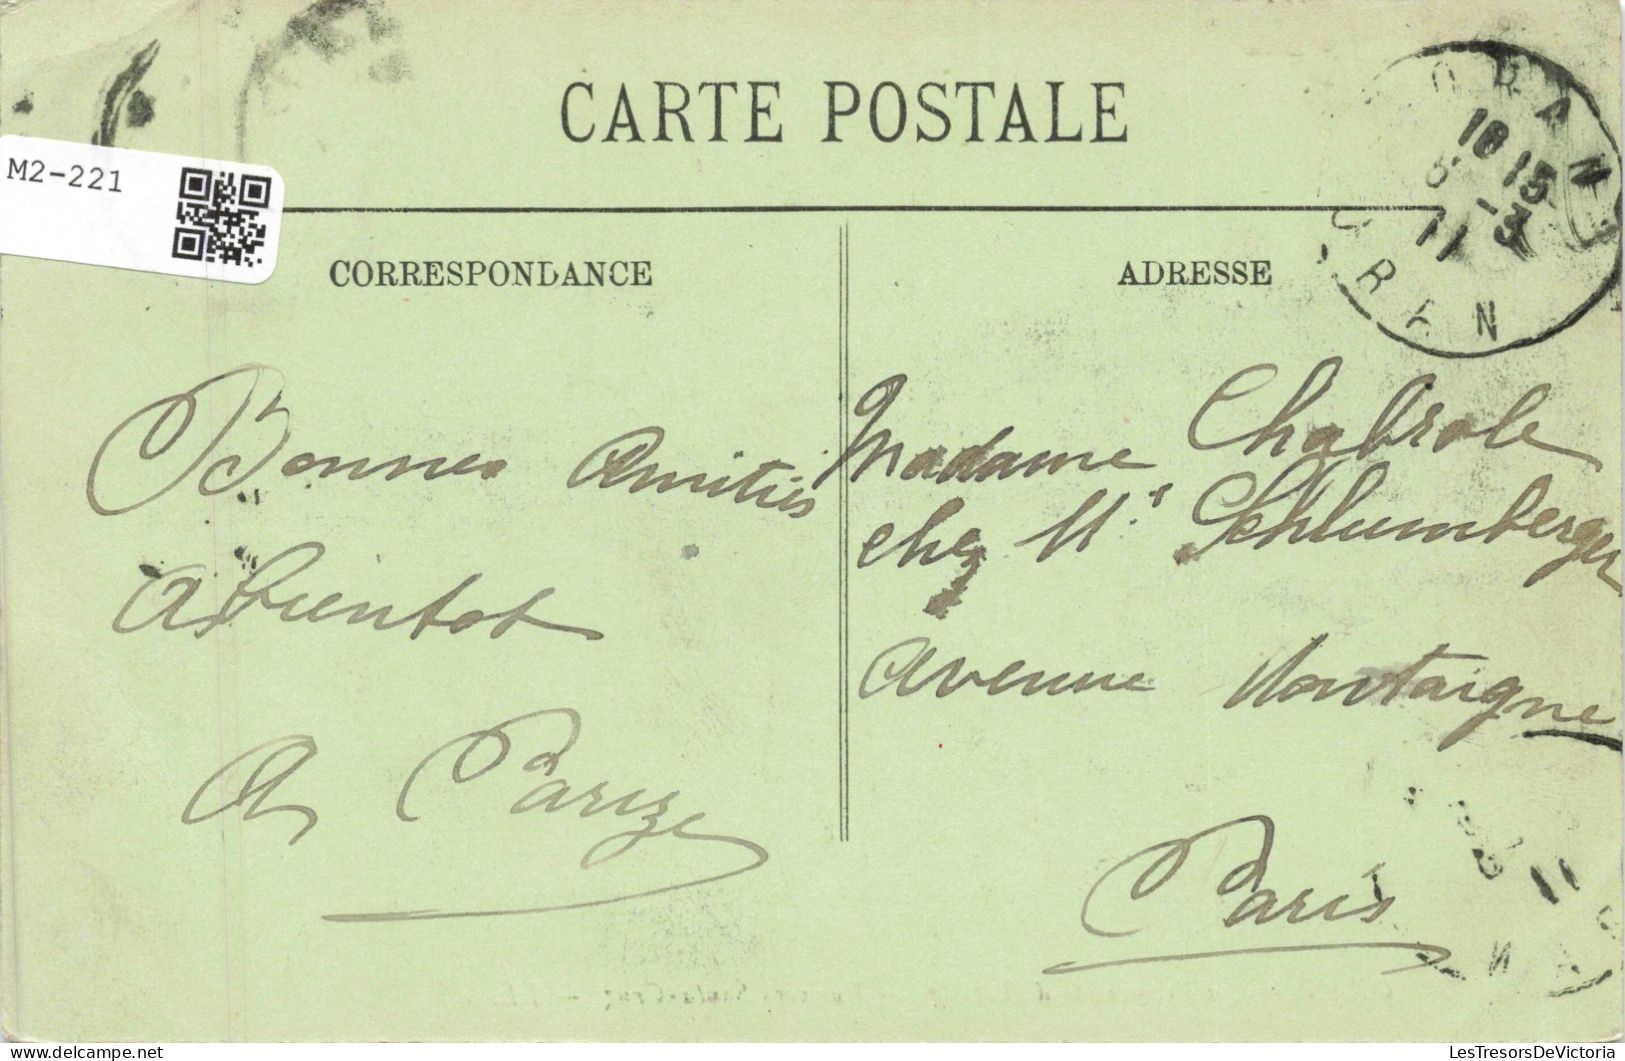 CARTE POSTALE
M2-221
ORAN
18 15
8 -3
11
ORAN
CORRESPONDANCE
ADRESSE
Bonnes Amitiés
A bientot
A Parize
Madame Chabrole
chez Mr Schlumberger
Avenue Montaigne
Paris
LesTresorsDeVictoria